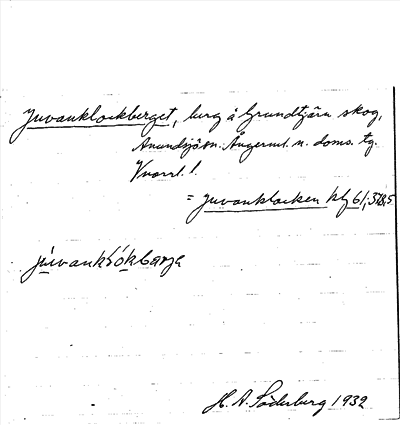 Juvanklockberget, berg å Grundtjärn skog,
Anundsjö sn. Ångerml. n. doms. tg.
Vnorrl. l.
= Juvanklocken kbl 61; 378,5
júvank
H. A. Söderberg 1932